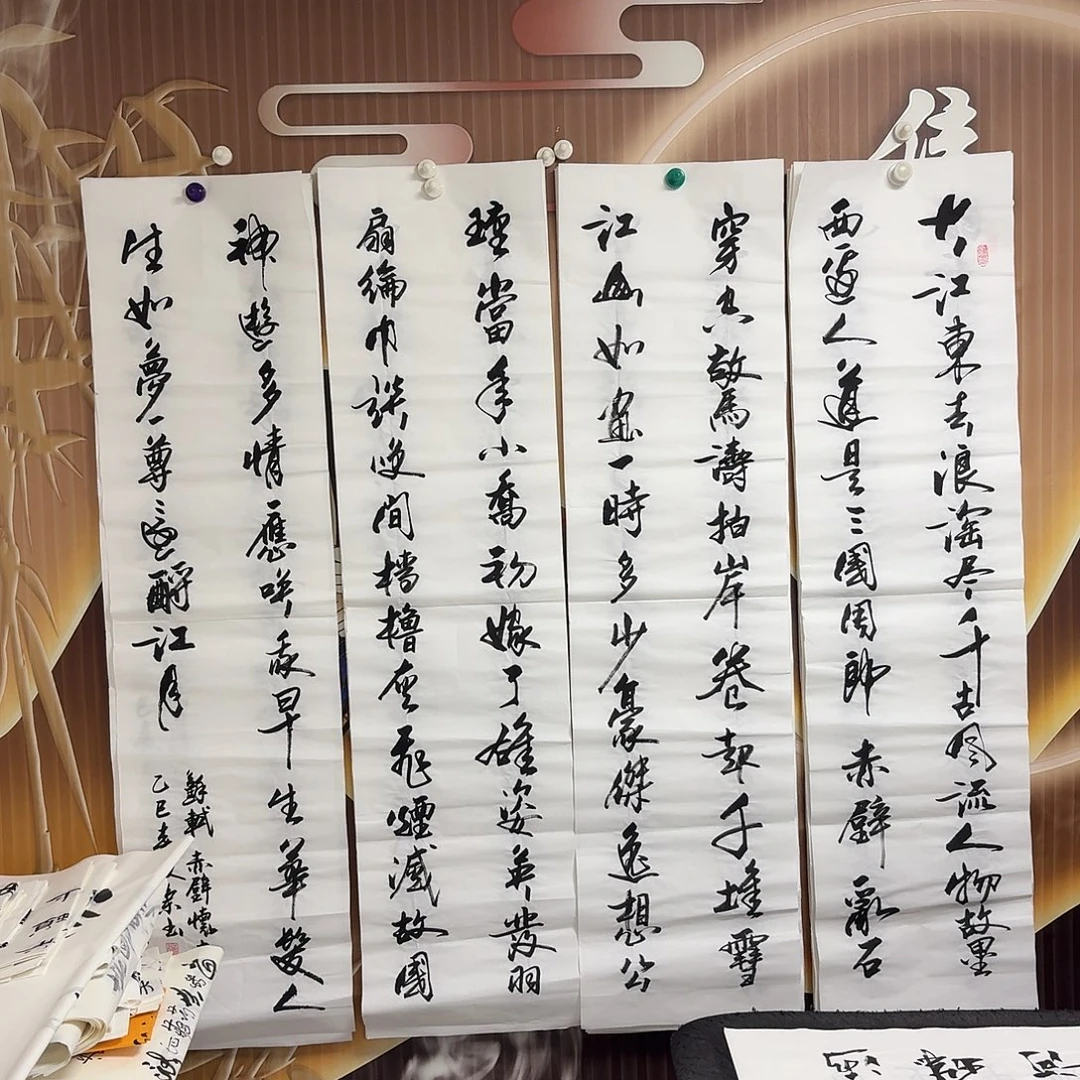 大江東去浪淘尽千古风流人物故壘
西邊人道是三國周郎赤壁亂石
穿空驚濤拍岸卷起千堆雪
江山如畫一時多少豪傑遥想公
瑾當年小喬初嫁了雄姿英發羽
扇綸巾談笑間檣櫓灰飛煙滅故國
神遊多情應笑我早生華髮人
生如夢一尊還酹江月
蘇軾 赤壁懷
乙巳春